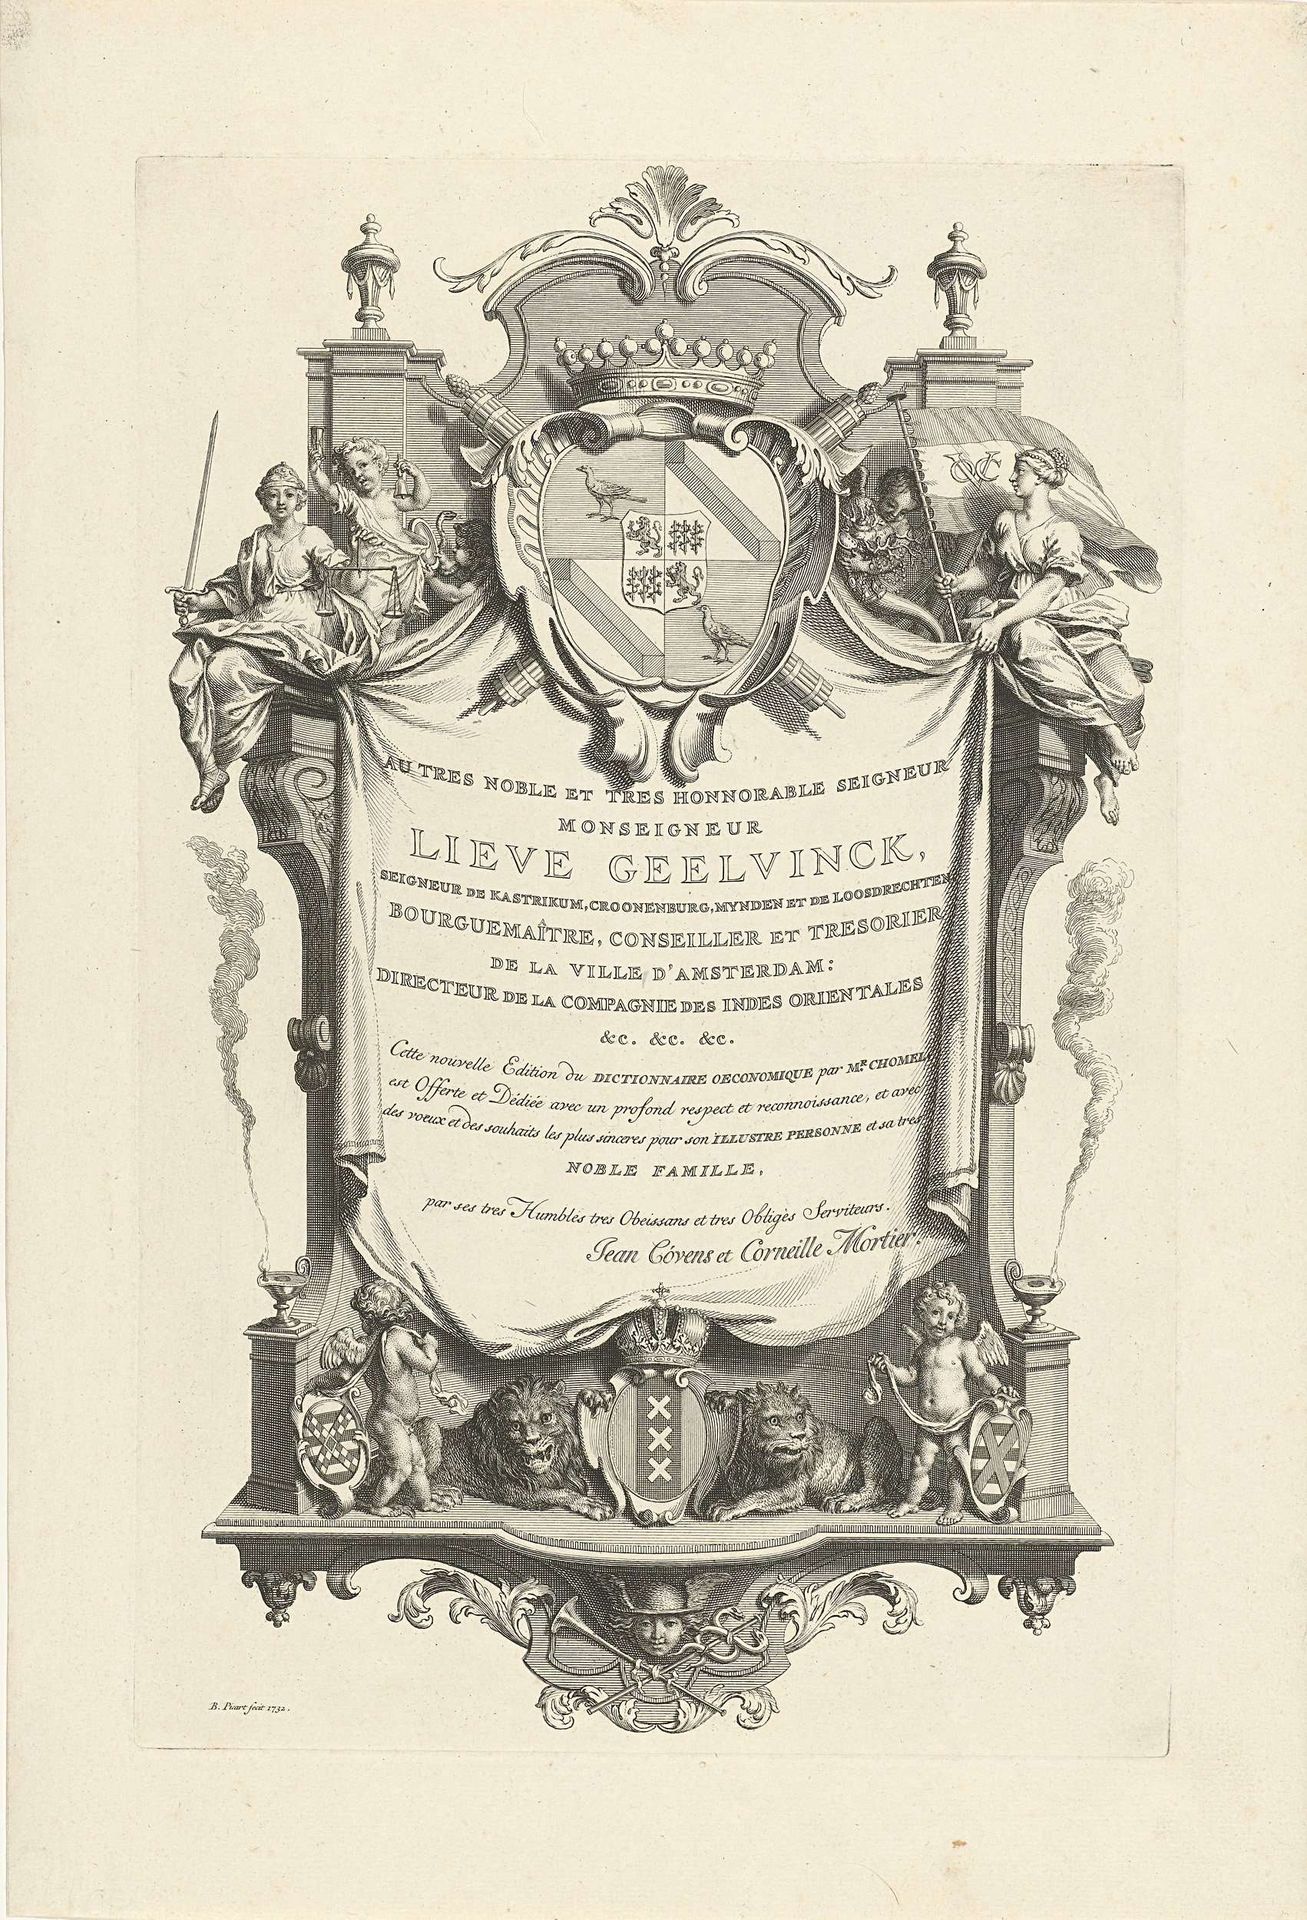 VOC
AU TRES NOBLE ET TRES HONNORABLE SEIGNEUR
MONSEIGNEUR
LIEVE GEELVINCK,
SEIGNEUR DE KASTRIKUM, CROONENBURG, MYNDEN ET DE LOOSDRECHTEN
BOURGUEMAÎTRE, CONSEILLER ET TRESORIER
DE LA VILLE D'AMSTERDAM:
DIRECTEUR DE LA COMPAGNIE DES INDES ORIENTALES
&c. &c. &c.
Cette nouvelle Edition du DICTIONNAIRE OECONOMIQUE par Mʀ. CHOMEL
est Offerte et Dédiée avec un profond respect et reconnoissance, et avec
des voeux et des souhaits les plus sinceres pour son ILLUSTRE PERSONNE et sa tres
NOBLE FAMILLE,
par ses tres Humbles tres Obeissans et tres Obligés Serviteurs.
Jean Cóvens et Corneille Mortier.
B. Picart fecit 1732.